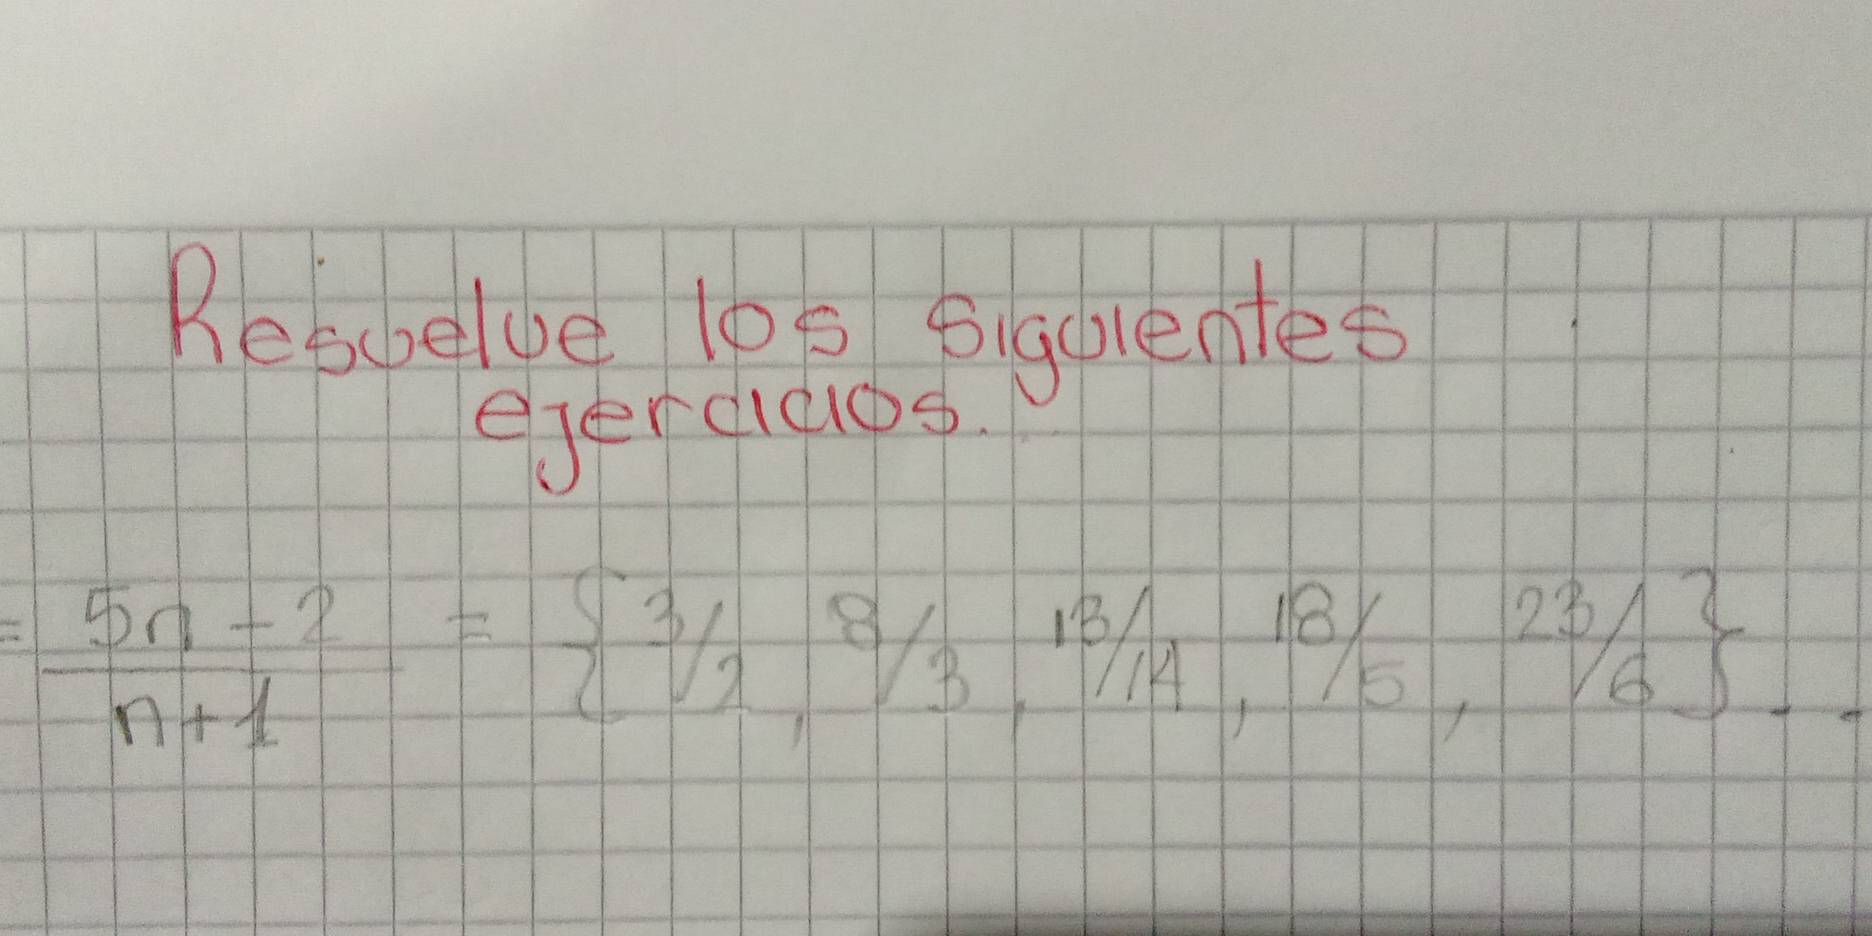 Resuelve los siguientes
ejercicios.
= 5n - 2 / n + 1 = { 3/2, 8/3, 13/14, 18/5, 23/6 } . .